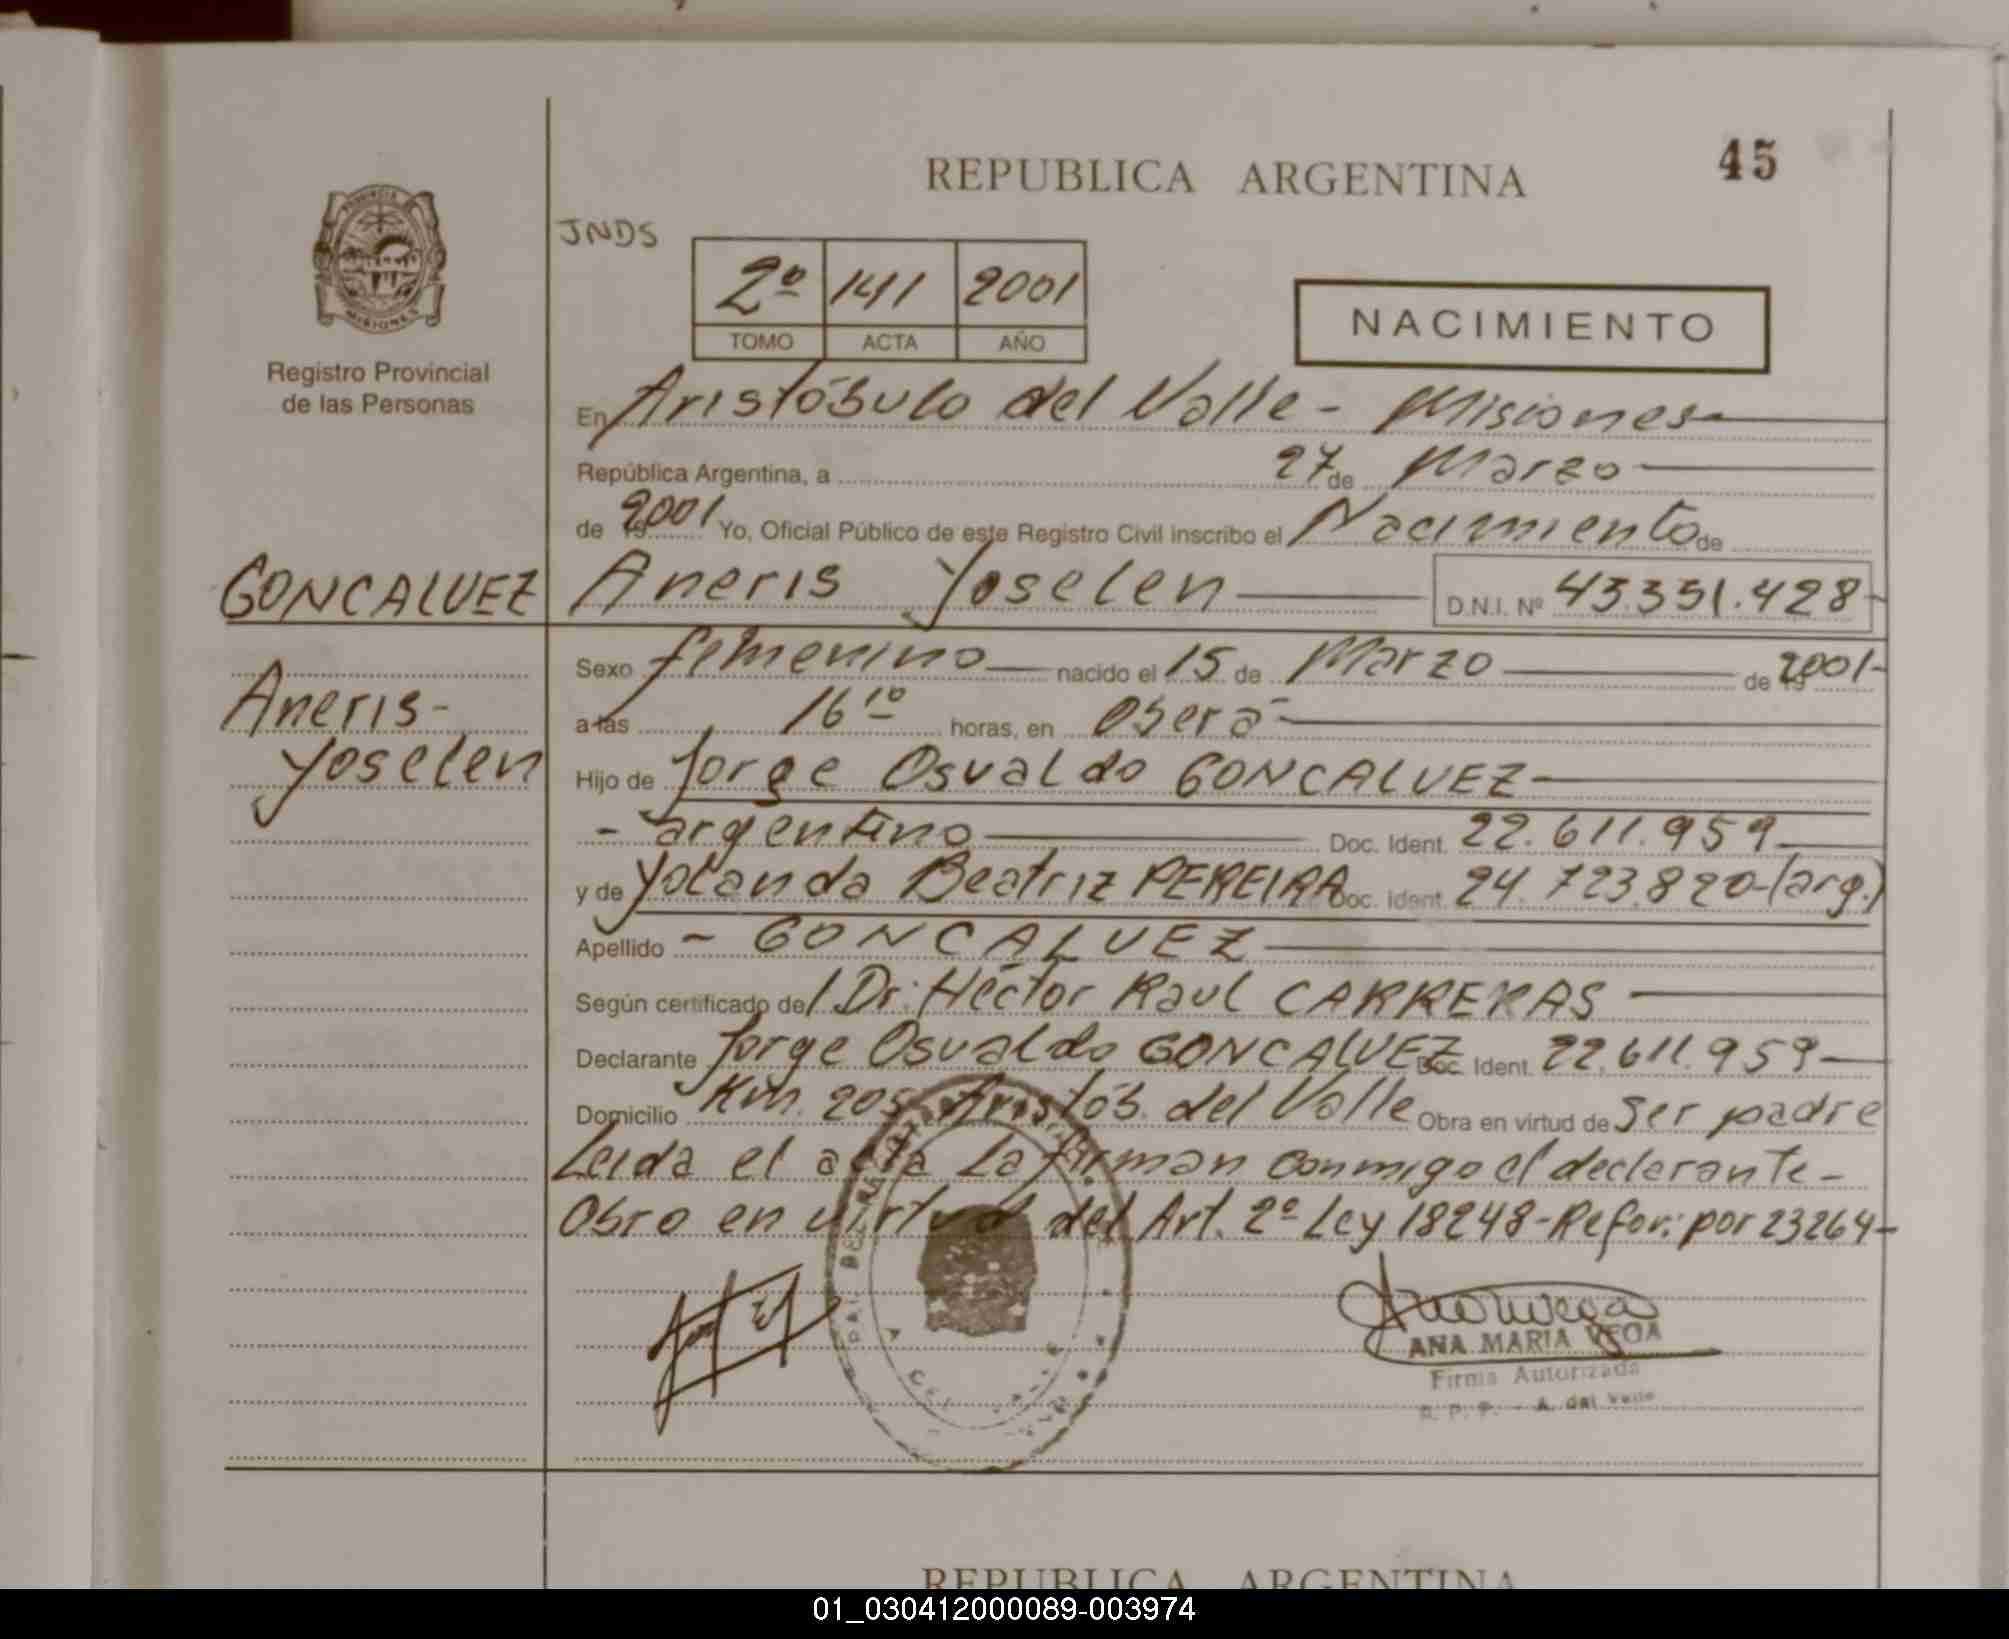 REPUBLICA ARGENTINA
45
PROVINCIA DE
MISIONES
Registro Provincial
de las Personas
JNDS
2º 141 2001
TOMO ACTA AÑO
NACIMIENTO
En Aristóbulo del Valle - Misiones
República Argentina, a 27 de Marzo
de 2001 Yo, Oficial Público de este Registro Civil inscribo el Nacimiento de
GONCALVEZ
Aneris-
Yoselen
Aneris Yoselen D.N.I. Nº 43.351.428-
Sexo femenino nacido el 15 de Marzo de 2001-
a las 16 10 horas, en Oberá
Hijo de Jorge Osvaldo GONCALVEZ
- argentino Doc. Ident. 22.611.959
y de Yolanda Beatriz PEREIRA Doc. Ident. 24.723.820-(arg.)
Apellido - GONCALVEZ
Según certificado de Dr. Héctor Raul CARRERAS
Declarante Jorge Osvaldo GONCALVEZ Doc. Ident. 22.611.959
Domicilio Km. 205 Aristób. del Valle Obra en virtud de ser padre
Leida el acta La firman conmigo el declarante-
Obro en virtud del Art. 2º Ley 18248-Refor: por 23264-
ANA MARIA VEGA
Firma Autorizada
R. P. P. - A. del Valle
REPUBLICA ARGENTINA
01_030412000089-003974